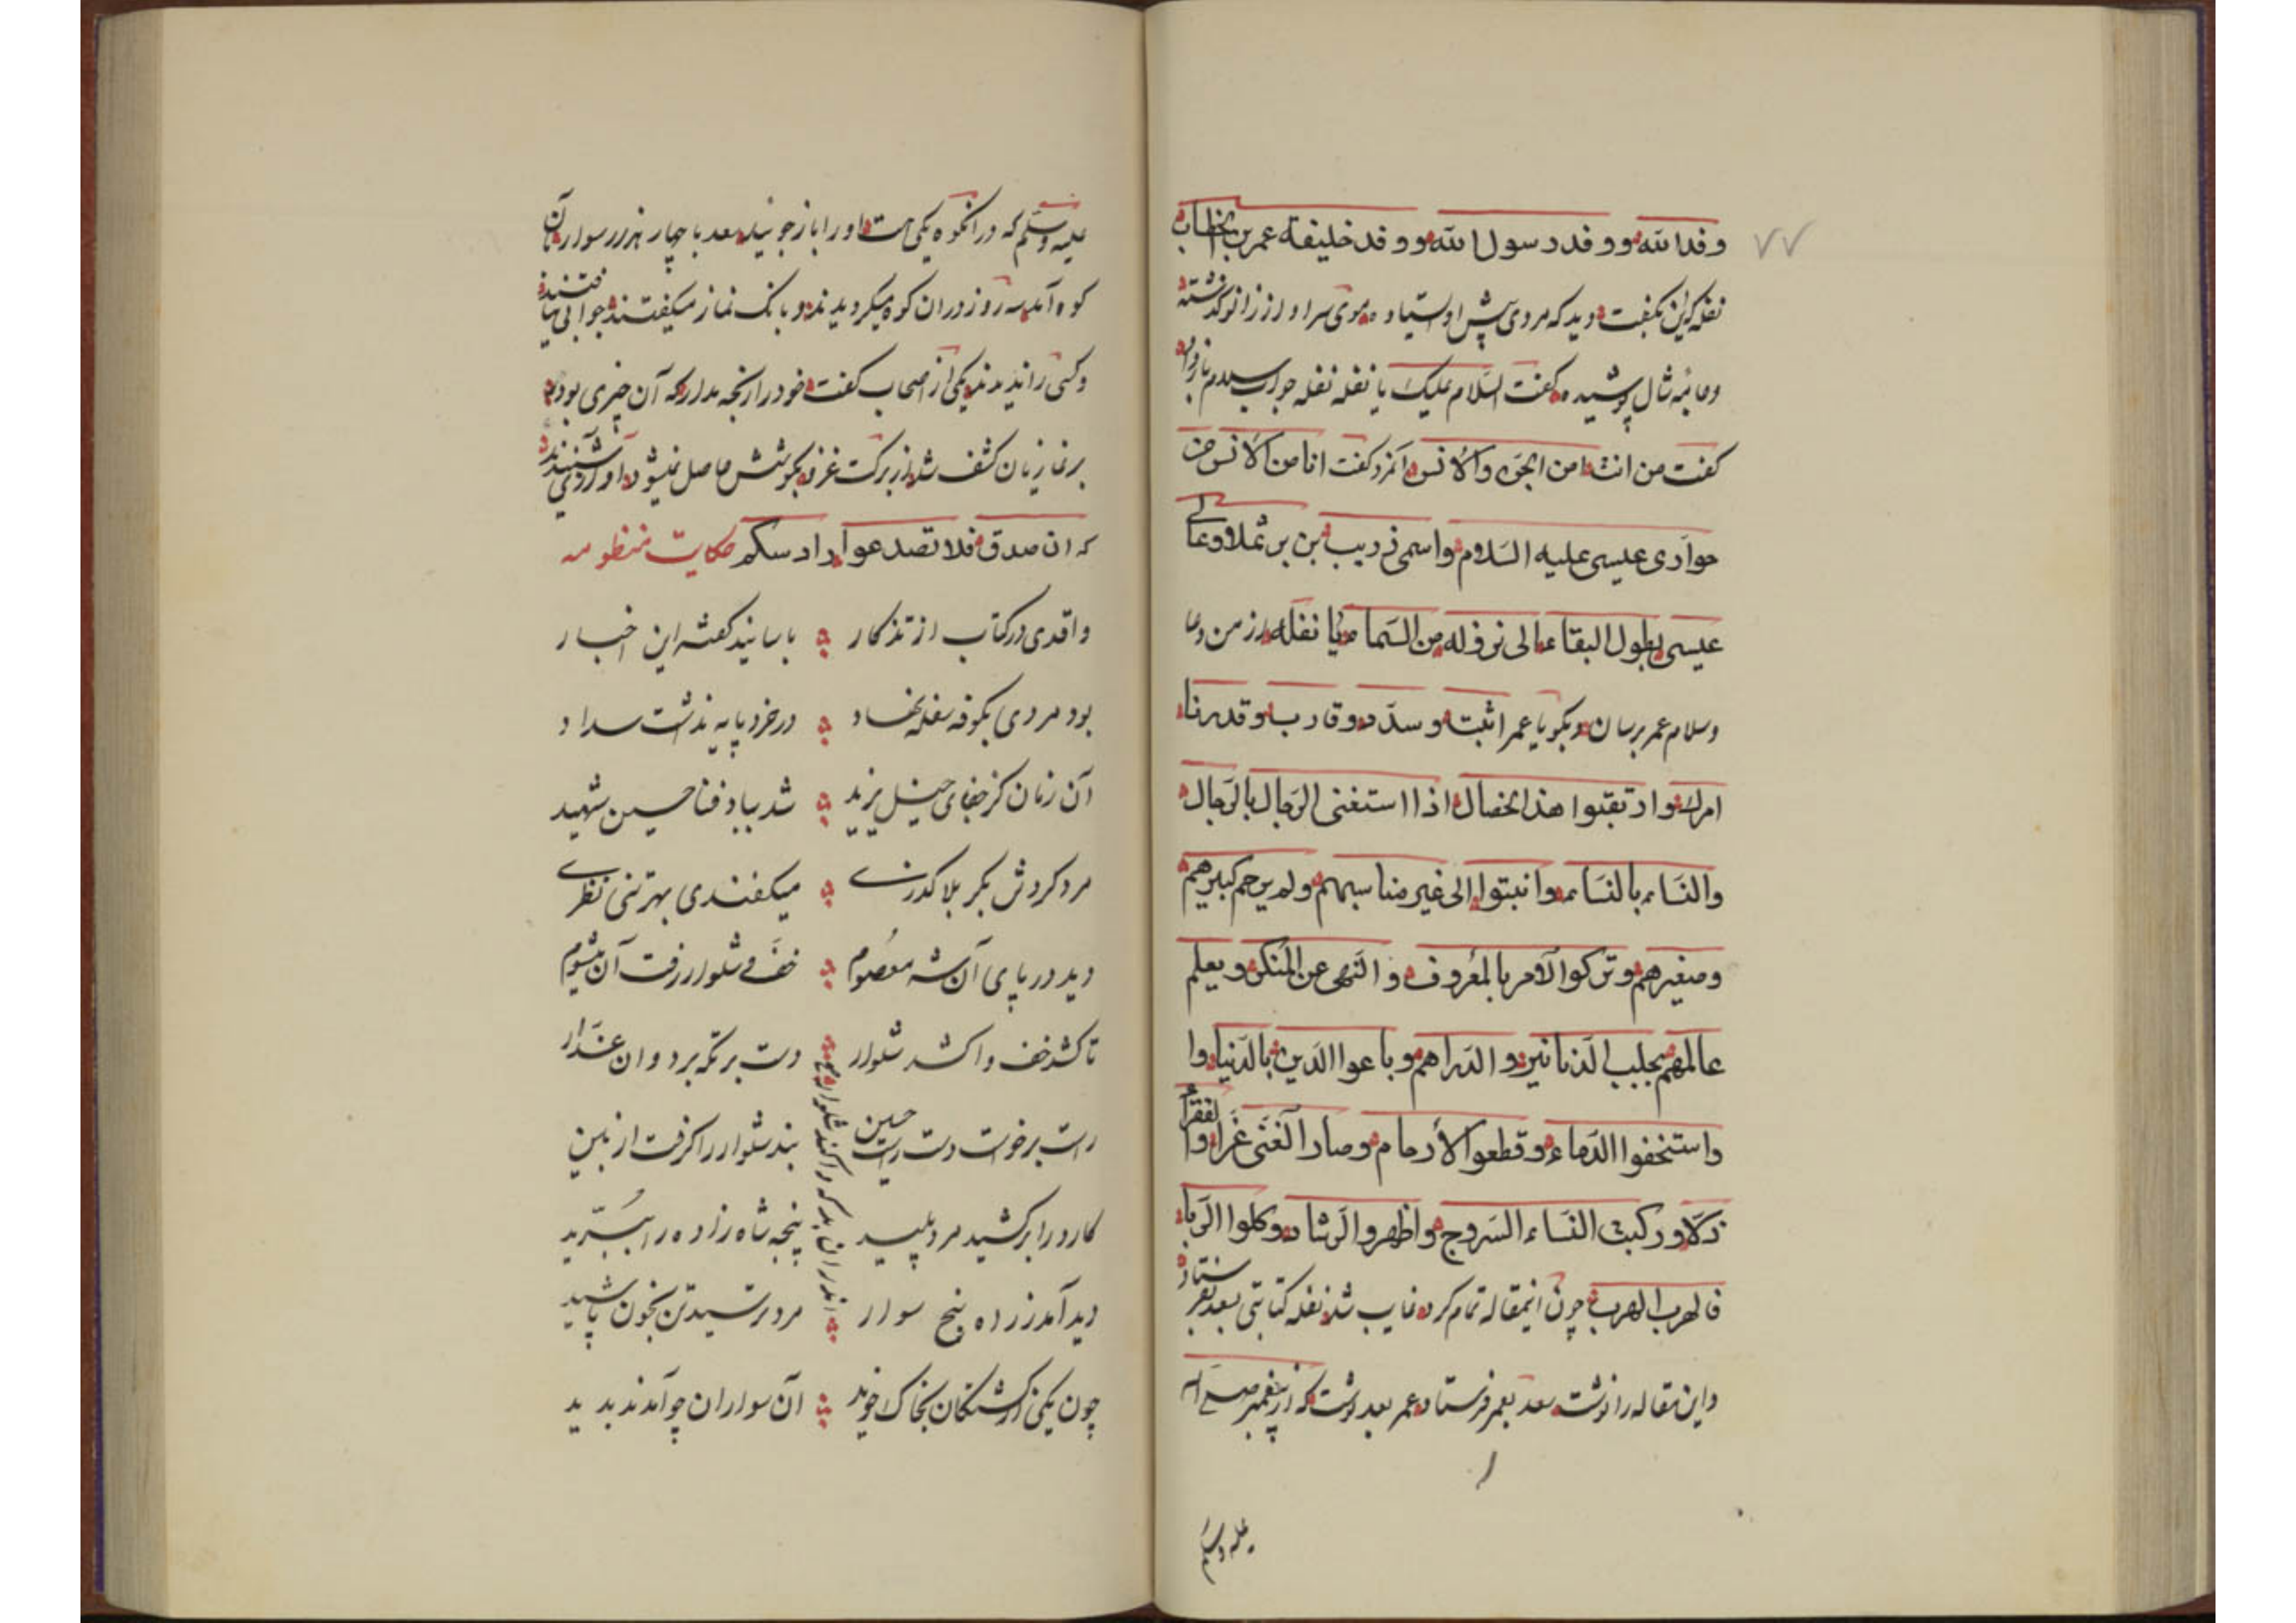 ٧٧
وفدالله ووفد رسول الله ووفد خلیفة عمر بن الخطاب
نفله که این بگفت دید که مردی پیش او استاده موی سر او از زانو گذشته
وجامهٔ شال پوشیده گفت السّلام علیک یا نفله نفله جواب سلام باز داد
گفت من انت امن الجن والانس آنمرد گفت انا من الانس من
حواری عیسی علیه السّلام واسمی زریب بن برثملا ودعا لی
عیسی بطول البقاء الی نزوله من السّماء یا نفله از من دعا
وسلام عمر برسان وبگو یا عمر اثبت وسدّد وقارب وقد دنا
امرک وارتقبوا هذا الخصال اذا استغنی الرّجال بالرّجال
والنّساء بالنّساء وانبتوا الی غیر مناسبهم ولم یرحم کبیرهم
وصغیرهم وترکوا الامر بالمعروف والنّهی عن المنکر ویعلم
عالمهم بجلب الدّنانیر والدّراهم وباعوا الدّین بالدّنیا وا
واستخفوا الدّماء وقطعوا الأرحام وصار الغنی عزا والفقر
ذلا ورکبت النّساء السّروج واظهروا الرّشاء وکلوا الرّبا
فالهرب الهرب چون اینمقاله تمام کرد غایب شد نفله کتابتی بسعد بفرستاد
واین مقاله را نوشت سعد بعمر فرستاد عمر بسعد نوشت که از پیغمبر صلی الله
علیه وسلم
علیه وسلّم که در انکوه یکی هست او را باز جوئید سعد با چهار هزار سوار بآن
کوه آمد سه روز در ان کوه میگردیدند وبانگ نماز میگفتند جوابی نیافتند
وکسی را ندیدند یکی از اصحاب گفت خود را رنجه مدار که آن چیزی بود
بر نمازیان کشف شد از برکت غزو بکوشش حاصل نمیشود اوازی شنیدند
که ان صدق فلا تصدعوا داد سکم حکایت منظومه
واقدی در کتاب از تذکار باسانید گفته این اخبار
بود مردی بکوفه سفله نهاد در خرد پایه نداشت سداد
آن زمان کز جفای خیل یزید شد بباد فنا حسین شهید
مرد کردش بکربلا گذری میکفندی بهر تنی نظری
دید در پای آن شه معصوم خف وشلوار رفت آن میشوم
تا کشد خف واکشد شلوار دست بر تکه برد وان غدار
راست برخواست دست راست حسین بند شلوار را گرفت از بین
کارد را برکشید مرد پلید پنجه شاه زاده را ببرّید
دید آمد ز راه پنج سوار مرد ترسید تن بخون پاشید
چون یکی از کشتگان بخاک خزید آن سواران چو آمدند بدید